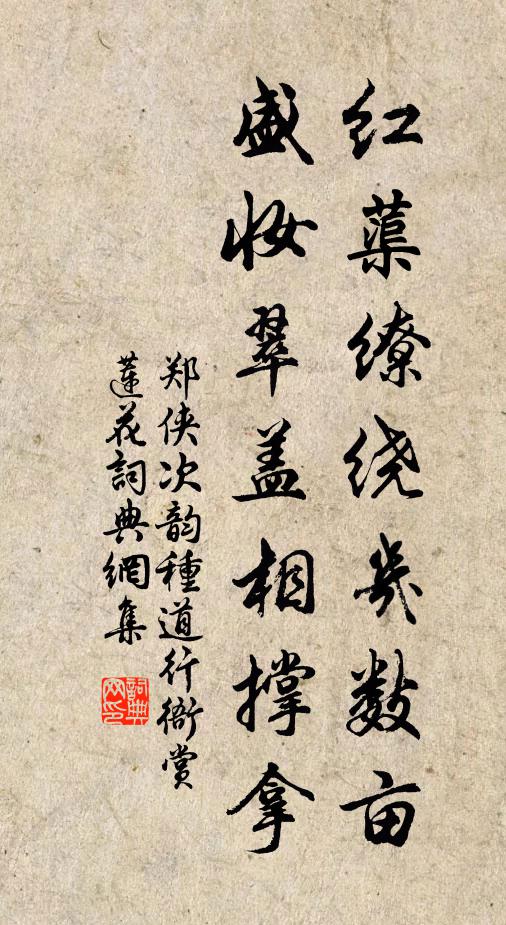 红蕖缭绕几数亩
盛妆翠盖相撑拿
郑侠次韵種道行衙赏
莲花詞典網集
詞典网印